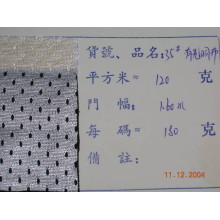 貨號、品名:35#有光網布
平方米= 120 克
門 幅: 1.60m
每 碼= 180 克
備 註:
11.12.2004